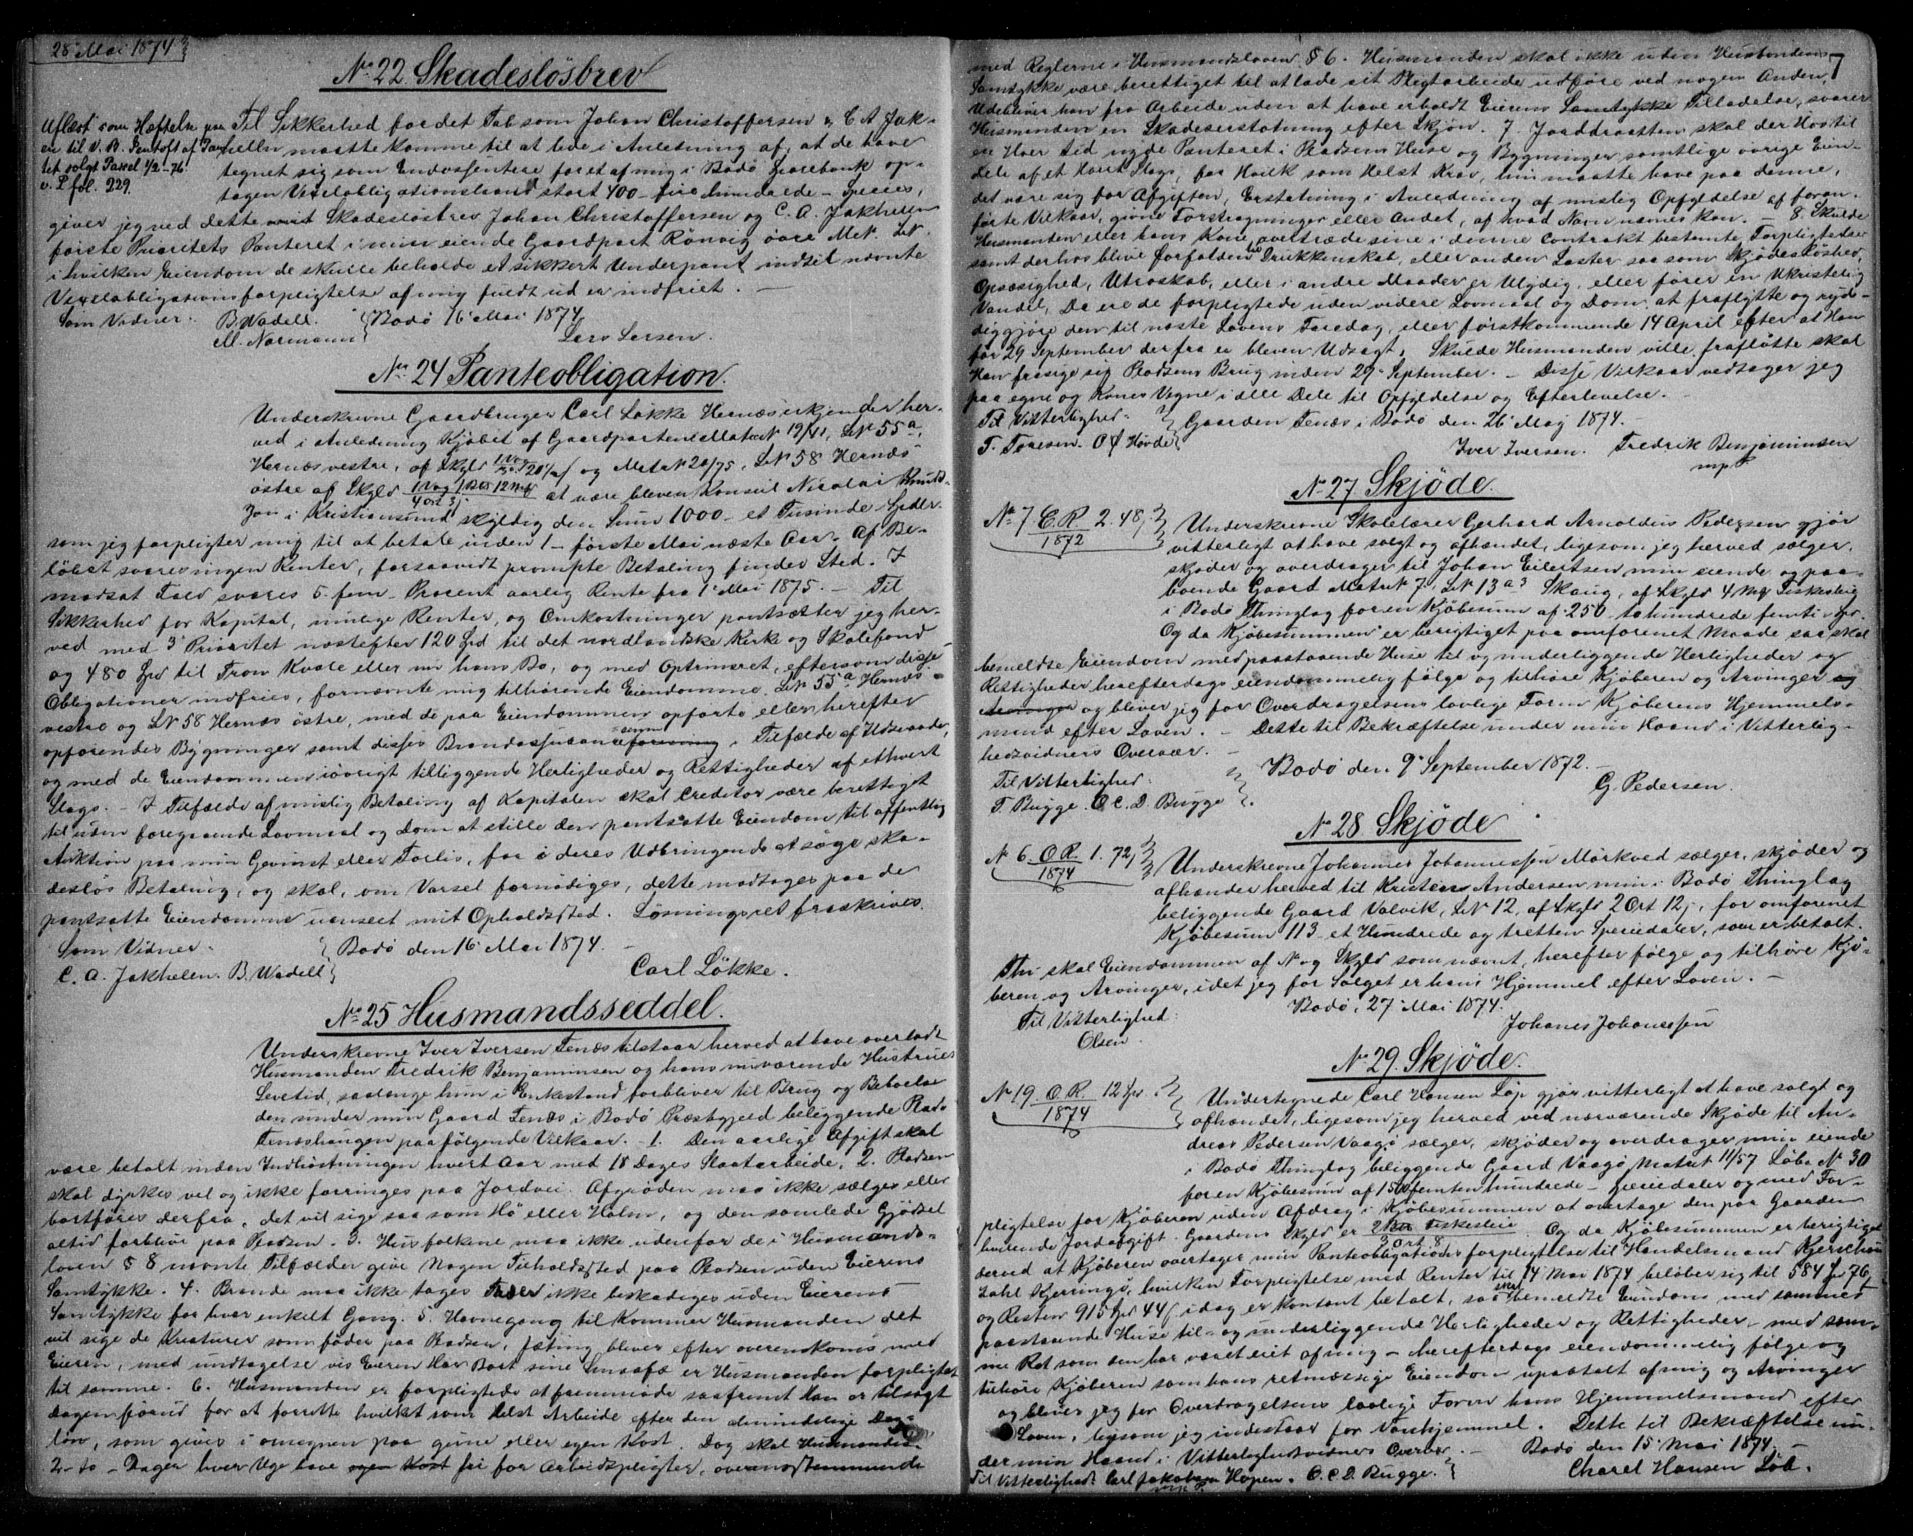 28 Mai 1874
No 22 Skadesløsbrev
Til Sikkerhed for det Tab som Johan Christoffersen og C A Jak-
helln maatte komme til at lide i Anledning af, at de have
tegnet sig som Endossentere foret af mig i Bodø Sparebank op-
tagen Vexelobligationslaand stort 400 fire hundrede Species,
giver jeg ved dette Skadesløsbrev Johan Christoffersen og C. A. Jakhelln
første Prioritets Panteret i min eiende Gaardpart Rønvig øvre Mtr. LN.
i hvilken Eiendom de skulle beholde et sikkert Underpant indtil nævnte
Vexelobligationsforpligtelse af mig fuldt ud er indfriet.
Som Vidner. B Wadell. Bodø 16 Mai 1874
M. Normann Lars Larsen.
Aflæst som Hæftelse paa
solgt Parcel 1/2-76
v. P fol. 229.
No 24 Panteobligation.
Underskrevne Gaardbruger Carl Løkke Hernæs erkjender her-
ved i Anledning Kjøbet af Gaardparterne Matr N 19/41, LN 55a,
Hernæs vestre, af Skyld og Matr N 20/75, LN 58 Hernæs
østre af Skyld 1 Vog 1 Bis 12 Mrk at være bleven Konsul Nicolai Knudt-
zon i Kristiansund skyldig den Sum 1000 et Tusinde Spdlr
som jeg forpligter mig til at betale inden 1 første Mai næste Aar. Af Be-
løbet svares ingen Renter, forsaavidt prompte Betaling finder Sted. I
modsat Fald svares 5 fem Procent aarlig Rente fra 1 Mai 1875. Til
Sikkerhed for Kapital, mulige Renter, og Omkostninger pantsætter jeg her-
ved med 3 Prioritet næstefter 120 Spd til det nordlandske Kirke og Skolefond
og 480 Spd til Tron Kvale eller nu hans Bo, og med Optrineret, eftersom disse
Obligationer indfries, fornævnte mig tilhørende Eiendomme LN 55a Hernæs
vestre og LN 58 Hernæs østre, med de paa Eiendommen opførte eller herefter
opførendes Bygninger samt disses Brandassurancesum i Tilfælde af Ildsvaade,
og med de Eiendommen iøvrigt tilliggende Herligheder og Rettigheder af ethvert
Slags. I Tilfælde af mislig Betaling af Kapitalen skal Creditor være berettiget
til uden foregaaende Lovmaal og Dom at stille den pantsatte Eiendom til offentlig
Auktion paa min Gevinst eller Forlis, for i deres Udbringende at søge ska-
desløs Betaling, og skal, om Varsel fornødiges, dette modtages paa de
pantsatte Eiendomme uanseet mit Opholdssted. Løsningsret fraskrives.
Som Vidner. Bodø den 16 Mai 1874.
C. A. Jakhelln. B. Wadell Carl Løkke.
No 25 Husmandsseddel.
Underskrevne Iver Iversen Tenæs tilstaar herved at have overladt
Husmanden Fredrik Benjaminsen og hans nuværende Hustrues
Levetid, saalænge hun i Enkestand forbliver til Brug og Beboelse
den under min Gaard Tenæs i Bodø Præstegjeld beliggende Plads
Tenæshaugen paa følgende Vilkaar. 1. Den aarlige Afgift skal
være betalt inden Indhøstningen hvert Aar med 18 Dages Slaatarbeide, 2. Pladsen
skal dyrkes vel og ikke forringes paa Jordvei. Afgrøden maa ikke sælges eller
bortføres derfra, det vil sige saa som Hø eller Halm, og den samlede Gjødsel
altid forblive paa Pladsen. 3. Husfolkene maa ikke udenfor de i Husmands-
loven § 8 nævnte Tilfælder give Nogen Tilholdssted paa Pladsen uden Eierens
Samtykke. 4. Brænde maa ikke tages ikke beskadiges uden Eierens
Samtykke for hver enkelt Gang. 5. Havnegang til kommer Husmanden det
vil sige de Kreaturer som føder paa Pladsen, Jæting bliver efter overenskoms med
Eieren, med undtagelse vis Eieren Har Bort sine Smaafæ er Husmanden forpligtet
til samme. 6. Husmanden er forpligtede at fremmøde saafremt Han er tilsagt
Dagen forud for at forrette hvilket som helst Arbeide efter den almindelige Dag-
løn, som gives i omegnen paa Egne eller egen Kost. Dog skal Husmanden
2 to Dager hver Uge have fri for Arbeidspligter, overensstemmende
7
med Reglerne i Husmandsloven § 6. Husmanden skal ikke uden Husbondens
Samtykke være berettiget til at lade sit Pligtarbeide udføre ved nogen Anden,
Udebliver han fra Arbeide uden at have erholdt Eierens Samtykke Tilladelse, svarer
Husmanden en Skadeserstatning efter Skjøn. 7. Jorddrotten skal der Hos til
en Hver tid nyde Panteret i Pladsens Huse og Bygninger samtlige øvrige Eien-
dele af et hvert Slags, for Hvilk som Helst Krav, hun maatte have paa denne,
det være sig for Afgiften, Erstatning i Anledning af mislig Opfyldelse af foran-
førte Vilkaar, givne Forstrægninger eller Andet, af hvad Navn nævnes kan. 8. Skulde
Husmanden eller hans Kone overtræde sine i denne Contrakt bestemte Forpligtelser
samt derhos blive forfalden til Drukkenskab, eller anden Laster saa som Skjødesløshed,
Opsæsighed, Utroskab, eller i andre Maader er Ulydig, eller fører en Ukristelig
Vandel, Da ere de forpligtede uden videre Lovmaal og Dom, at fraflytte og ryd-
diggjøre den til næste Lovens Faredag, eller førstkommende 14 April efter at Han
før 29 September derfra er bleven Udsagt, Skulde Husmanden ville frafløtte skal
Han frasige sig Pladsens Brug inden 29 September. Disse Vilkaar vedtager jeg
paa egne og Kones Vegne i alle Dele til Opfyldelse og Efterlevelse.
Til Vitterlighed Gaarden Tenæs i Bodø den 26 Maj 1874.
T. Toresen. O J Høvde Iver Iversen. Fredrik Benjaminsen
mpP.
No 27 Skjøde.
No 7 E.R. 2.48
1872
Underskrevne Skolelærer Gerhard Arnoldus Pedersen gjør
vitterligt at have solgt og afhændet, ligesom jeg herved sælger,
skjøder og overdrager til Johan Eilertsen min eiende og paa-
boende Gaard Matr N 7, LN 13a3 Skaug, af Skyld 4 Mrk Fiskesleie
i Bodø Thinglag for en Kjøbesum af 250 tohundrede femti Spd.
Og da Kjøbesummen er berigtiget paa omforenet Maade saa skal
bemeldte Eiendom med paastaaende Huse til og underliggende Herligheder og
Rettigheder herefterdags eiendommelig følge og tilhøre Kjøberen og Arvinger og
Arvinger og bliver jeg for Overdragelsens lovlige Form Kjøberens Hjemmels-
mand efter Loven. Dette til Bekræftelse under min Haand i Vitterlig-
hedsvidners Overvær.
Til Vitterlighed: Bodø den 9 September 1872.
T. Bugge. O. C. D. Bugge G. Pedersen.
No 28 Skjøde
No 6 O.R. 1.72
1874
Underskrevne Johannes Johannessen Mørkved sælger, skjøder og
afhænder herved til Kristen Andersen min i Bodø Thinglag
beliggende Gaard Valvik, LN 12, af Skyld 2 Ort 12, for omforenet
Kjøbesum 113 et Hundrede og tretten Speciedaler, som er betalt.
Thi skal Eiendommen af N og Skyld som nævnt, herefter følge og tilhøre Kjø-
beren og Arvinger, idet jeg for Salget er hans Hjemmel efter Loven.
Til Vitterlighed: Bodø, 27 Mai 1874.
Olsen. Johanes Johanesen
No 29. Skjøde.
No 19 O.R. 12
1874
Undertegnede Carl Hansen Løp gjør vitterligt at have solgt og
afhændet, ligesom jeg herved ved nærværende Skjøde til An-
dreas Pedersen Vaagø sælger, skjøder og overdrager min eiende
i Bodø Thinglag beliggende Gaard Vaagø Matr N 11/57 Løbe N 30
for en Kjøbesum af 1500 femten hundrede Speciedaler og med For-
pligtelse for Kjøberen uden Afdrag i Kjøbesummen at overtage den paa Gaarden
hvilende Jordafgift. Gaardens Skyld er Og da Kjøbesummen er berigtiget
derved at Kjøberen overtager min Panteobligations forpligtelse til Handelsmand Kjerschow
Zahl Kjerringø, hvilken Forpligtelse med Renter til 14 Mai 1874 beløber sig til 584 Spd 76
og Resten 915 Spd 44 i dag er kontant betalt, saa skal bemeldte Eiendom med sammes
paastaaende Huse til og underliggende Herligheder og Rettigheder med sam-
me Ret som den har været eiet af mig herefterdags eiendommelig følge og
tilhøre Kjøberen som hans retmæssige Eiendom upaatalt af mig og Arvinger
og bliver jeg for Overdragelsens lovlige Form hans Hjemmelsmand efter
Loven, ligesom jeg indestaar for Vanhjemmel. Dette til Bekræftelse un-
der min Haand i Vitterlighedsvidners Overvær. Bodø den 15 Mai 1874.
Til Vitterlighed: Carl Jakobsen Hopen. O. C. D. Bugge. Charel Hansen Løb.
mp P.